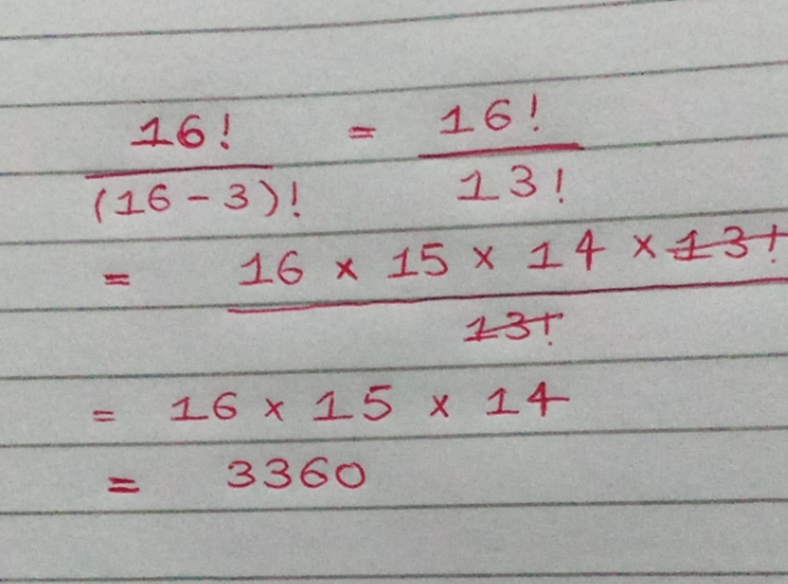 16! / (16-3)! = 16! / 13!
= 16 × 15 × 14 × 13! / 13!
= 16 × 15 × 14
= 3360